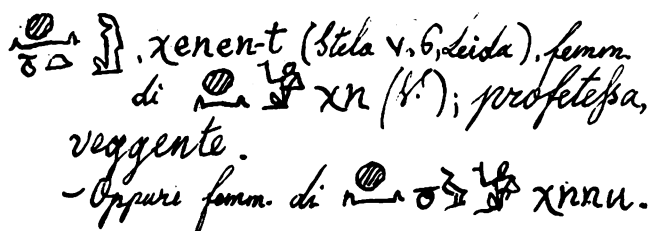 , χenen-t (Stela V, 6, Leida), femm.
di χn (V.); profetessa,
veggente.
– Oppure femm. di χnnu.